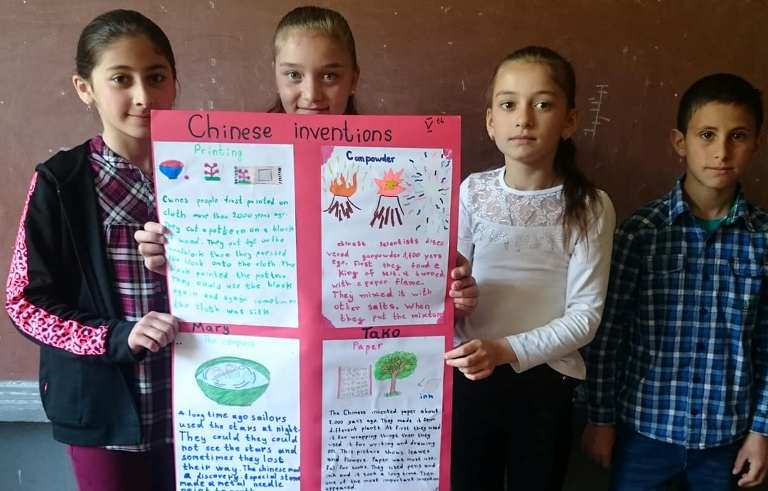 Chinese inventions Vth
Printing
people first printed on
cloth more than 2000 years ago.
They cut a pattern on a block
wood. They put
block then they pressed
block onto the cloth. The
block printed the
They could use the block
again and sometimes
the cloth was silk.
Mary
Gunpowder
chinese scientists disco
vered gunpowder 1,400 years
ago. First they found a
king of it burned
with a flame.
They mixed it with
other salts. When
they put the mixture
Tako
The compass
A long time ago sailors
used the stars at night.
They could They could
not see the stars and
sometimes they lost
their way. The chinese made
a discovery. special stone
made a metal needle
point to
Paper
ink
The Chinese invented paper about
2,000 years ago. They made it from
different plants. At first they
used it for wrapping things then they
used it for writing and drawing
on. This picture shows leaves
and flowers. Paper was most use-
ful for books. They used pens and
ink and it took a long time. Then
one of the most important invention
appeared